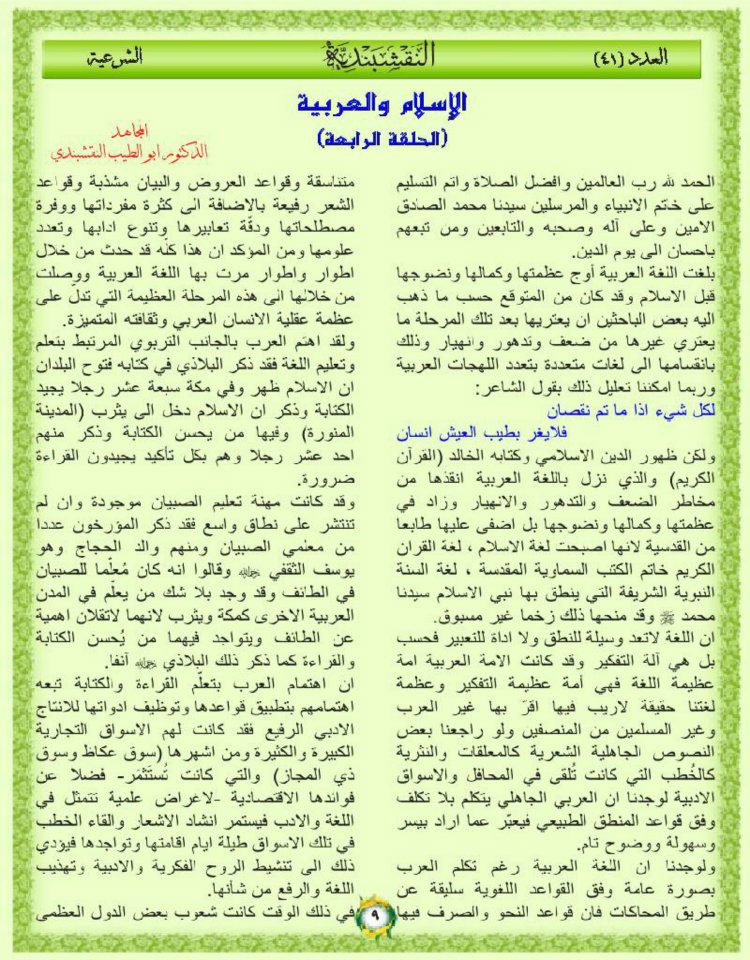 العدد (٤١)
النقشبندية
الشرعية
الإسلام والعربية
(الحلقة الرابعة)
المجاهد
الدكتور ابو الطيب النقشبندي
الحمد لله رب العالمين وافضل الصلاة واتم التسليم
على خاتم الانبياء والمرسلين سيدنا محمد الصادق
الامين وعلى آله وصحبه والتابعين ومن تبعهم
باحسان الى يوم الدين.
بلغت اللغة العربية أوج عظمتها وكمالها ونضوجها
قبل الاسلام وقد كان من المتوقع حسب ما ذهب
اليه بعض الباحثين ان يعتريها بعد تلك المرحلة ما
يعتري غيرها من ضعف وتدهور وانهيار وذلك
بانقسامها الى لغات متعددة بتعدد اللهجات العربية
وربما امكننا تعليل ذلك بقول الشاعر:
لكل شيء اذا ما تم نقصان
فلايغر بطيب العيش انسان
ولكن ظهور الدين الاسلامي وكتابه الخالد (القرآن
الكريم) والذي نزل باللغة العربية انقذها من
مخاطر الضعف والتدهور والانهيار وزاد في
عظمتها وكمالها ونضوجها بل اضفى عليها طابعا
من القدسية لانها اصبحت لغة الاسلام ، لغة القران
الكريم خاتم الكتب السماوية المقدسة ، لغة السنة
النبوية الشريفة التي ينطق بها نبي الاسلام سيدنا
محمد ﷺ وقد منحها ذلك زخما غير مسبوق.
ان اللغة لاتعد وسيلة للنطق ولا اداة للتعبير فحسب
بل هي آلة التفكير وقد كانت الامة العربية امة
عظيمة اللغة فهي أمة عظيمة التفكير وعظمة
لغتنا حقيقة لاريب فيها اقرّ بها غير العرب
وغير المسلمين من المنصفين ولو راجعنا بعض
النصوص الجاهلية الشعرية كالمعلقات والنثرية
كالخُطب التي كانت تُلقى في المحافل والاسواق
الادبية لوجدنا ان العربي الجاهلي يتكلم بلا تكلف
وفق قواعد المنطق الطبيعي فيعبّر عما اراد بيسر
وسهولة ووضوح تام.
ولوجدنا ان اللغة العربية رغم تكلم العرب
بصورة عامة وفق القواعد اللغوية سليقة عن
طريق المحاكات فان قواعد النحو والصرف فيها
متناسقة وقواعد العروض والبيان مشذبة وقواعد
الشعر رفيعة بالاضافة الى كثرة مفرداتها ووفرة
مصطلحاتها ودقّة تعابيرها وتنوع ادابها وتعدد
علومها ومن المؤكد ان هذا كلّه قد حدث من خلال
اطوار واطوار مرت بها اللغة العربية ووصلت
من خلالها الى هذه المرحلة العظيمة التي تدلّ على
عظمة عقلية الانسان العربي وثقافته المتميزة.
ولقد اهتم العرب بالجانب التربوي المرتبط بتعلم
وتعليم اللغة فقد ذكر البلاذي في كتابه فتوح البلدان
ان الاسلام ظهر وفي مكة سبعة عشر رجلا يجيد
الكتابة وذكر ان الاسلام دخل الى يثرب (المدينة
المنورة) وفيها من يحسن الكتابة وذكر منهم
احد عشر رجلا وهم بكل تأكيد يجيدون القراءة
ضرورة.
وقد كانت مهنة تعليم الصبيان موجودة وان لم
تنتشر على نطاق واسع فقد ذكر المؤرخون عددا
من معلمي الصبيان ومنهم والد الحجاج وهو
يوسف الثقفي رحمه الله وقالوا انه كان مُعلّما للصبيان
في الطائف وقد وجد بلا شك من يعلّم في المدن
العربية الاخرى كمكة ويثرب لانهما لاتقلان اهمية
عن الطائف ويتواجد فيهما من يُحسن الكتابة
والقراءة كما ذكر ذلك البلاذي رحمه الله آنفا.
ان اهتمام العرب بتعلّم القراءة والكتابة تبعه
اهتمامهم بتطبيق قواعدها وتوظيف ادواتها للانتاج
الادبي الرفيع فقد كانت لهم الاسواق التجارية
الكبيرة والكثيرة ومن اشهرها (سوق عكاظ وسوق
ذي المجاز) والتي كانت تُستثمر- فضلا عن
فوائدها الاقتصادية -لاغراض علمية تتمثل في
اللغة والادب فيستمر انشاد الاشعار والقاء الخطب
في تلك الاسواق طيلة ايام اقامتها وتواجدها فيؤدي
ذلك الى تنشيط الروح الفكرية والادبية وتهذيب
اللغة والرفع من شأنها.
في ذلك الوقت كانت شعوب بعض الدول العظمى
٩